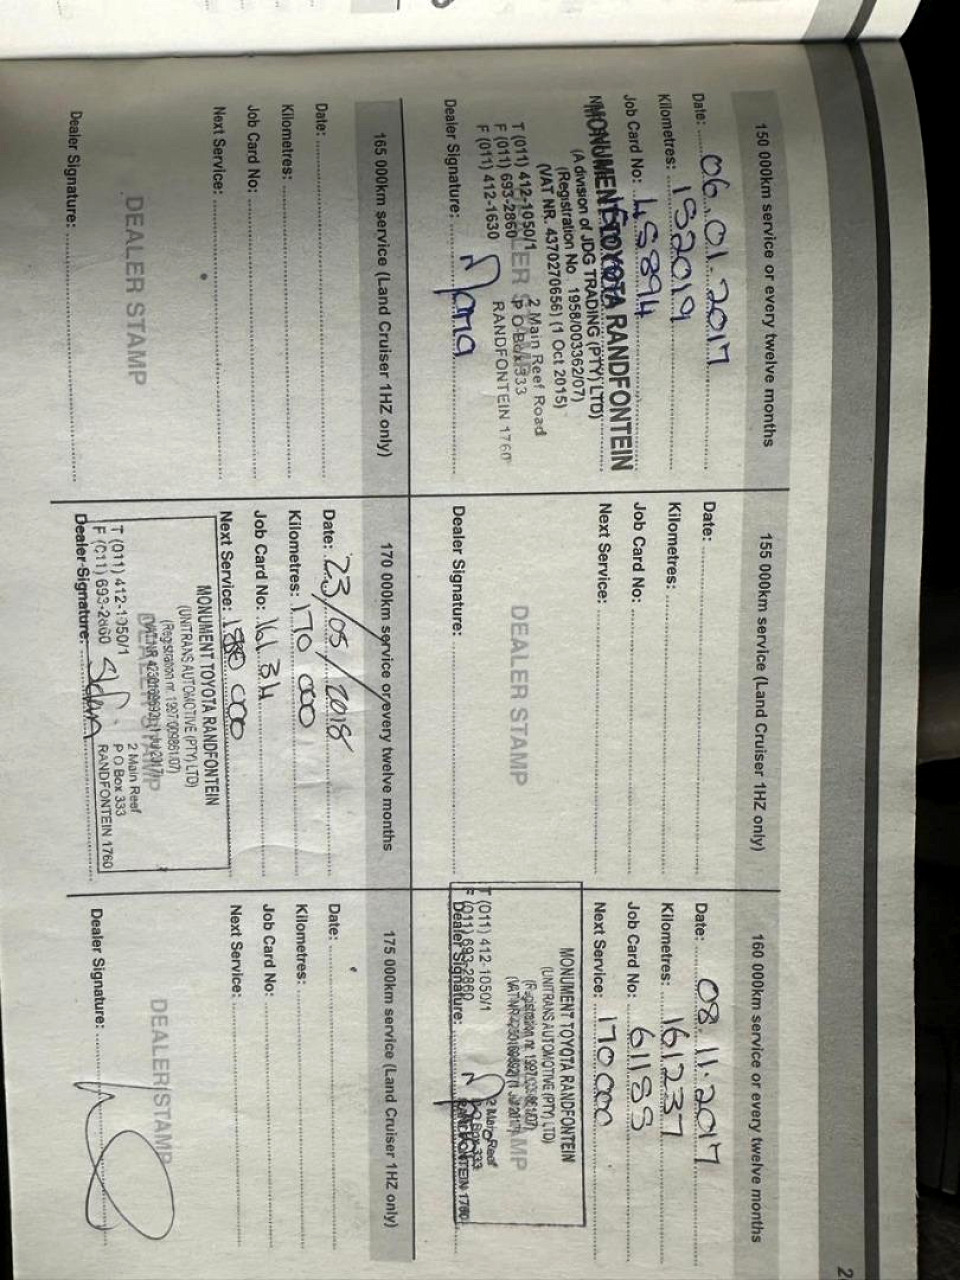 150 000km service or every twelve months
Date: 06.01.2017
Kilometres: 152019
Job Card No: 45894
MONUMENT TOYOTA RANDFONTEIN
(A division of JDG TRADING (PTY) LTD)
(Registration No. 1958/003362/07)
(VAT NR. 4370270656) (1 Oct 2015)
T (011) 412-1050/1
2 Main Reef Road
F (011) 693-2860
P O Box 333
F (011) 412-1630
RANDFONTEIN 1760
Dealer Signature:
155 000km service (Land Cruiser 1HZ only)
Date:
Kilometres:
Job Card No:
Next Service:
DEALER STAMP
Dealer Signature:
160 000km service or every twelve months
Date: 08.11.2017
Kilometres: 161237
Job Card No: 61185
Next Service: 170 000
MONUMENT TOYOTA RANDFONTEIN
(UNITRANS AUTOMOTIVE (PTY) LTD)
T (011) 412-1050/1
2 Main Reef
F (011) 693-2860
P O Box 333
RANDFONTEIN 1760
Dealer Signature:
165 000km service (Land Cruiser 1HZ only)
Date:
Kilometres:
Job Card No:
Next Service:
DEALER STAMP
Dealer Signature:
170 000km service or every twelve months
Date: 23/05/2018
Kilometres: 170 000
Job Card No: 16134
Next Service: 180 000
MONUMENT TOYOTA RANDFONTEIN
(UNITRANS AUTOMOTIVE (PTY) LTD)
DEALER STAMP
T (011) 412-1050/1
2 Main Reef
F (011) 693-2860
P O Box 333
RANDFONTEIN 1760
Dealer Signature:
175 000km service (Land Cruiser 1HZ only)
Date:
Kilometres:
Job Card No:
Next Service:
DEALER STAMP
Dealer Signature:
2